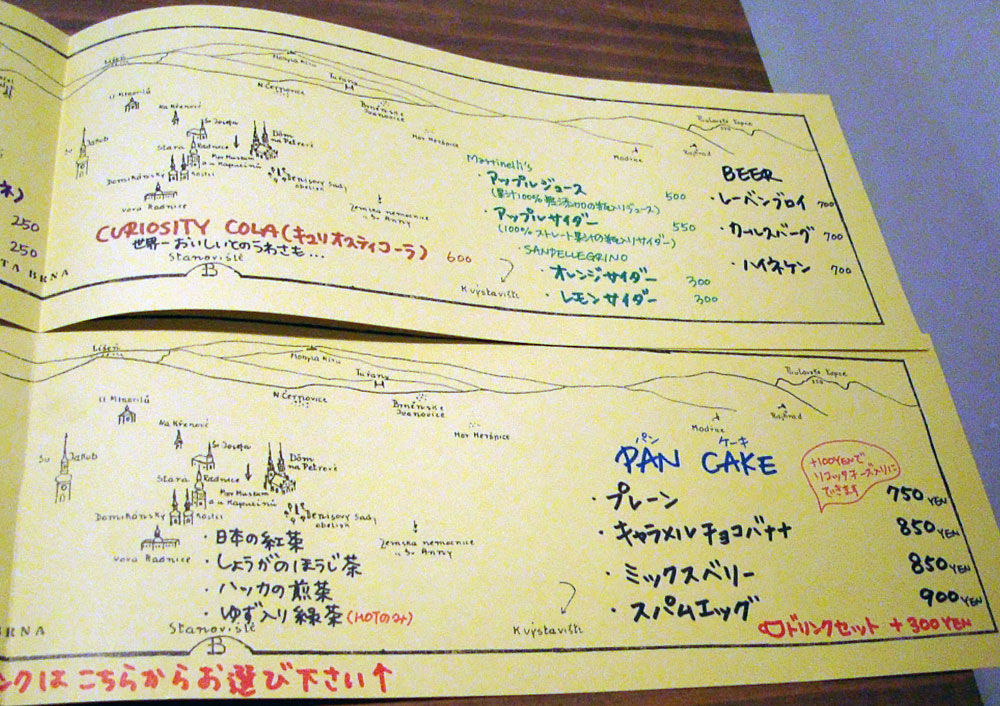 Líšeň
Mohyla Míru
Tuřany
U Minoritů
Na Křenové
N. Černovice
Brněnske
Ivanovice
Sv Josefa
Mor Heršpice
Modřice
Rajhrad
Jakub
Stara
Radnice
Dóm
na Petrově
Mor Museum
a u Kapucínů
Dominikánský
Kostel
Denisovy Sady
obelisk
Zemska nemocnice
u Sv. Anny
Martinelli's
・アップルジュース 500
・アップルサイダー 550
・SANPELLEGRINO
・オレンジサイダー 300
・レモンサイダー 300
BEER
・レーベンブロイ 700
・カールスバーグ 700
・ハイネケン 700
250
250
CURIOSITY COLA(キュリオスティコーラ) 600
世界一おいしいとのうわさも…
Stanoviště
B
K výstavišti
TA BRNA
Líšeň
Mohyla Míru
Tuřany
U Minoritů
Na Křenové
N Černovice
Brněnske
Ivanovice
Mor Heršpice
Modřice
Rajhrad
Sv Jakub
Sv Josefa
Stara
Radnice
Dóm
na Petrově
Mor Museum
a u Kapucínů
Dominikánský
Kostel
Denisovy Sady
obelisk
Zemska nemocnice
u Sv. Anny
・日本の紅茶
・しょうがのほうじ茶
・ハッカの煎茶
・ゆず入り緑茶(HOTのみ)
Stanoviště
B
K výstavišti
パン ケーキ
PAN CAKE
+100YENで
リコッタチーズ入りに
できます
・プレーン 750 YEN
・キャラメルチョコバナナ 850 YEN
・ミックスベリー 850 YEN
・スパムエッグ 900 YEN
ドリンクセット +300 YEN
BRNA
ンクはこちらからお選び下さい↑